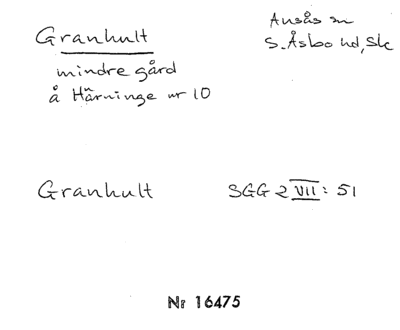 Granhult
Ausås sn
S. Åsbo hd, Sk
mindre gård
å Härninge nr 10
Granhult
SGG 2 VII: 51
Nr 16475